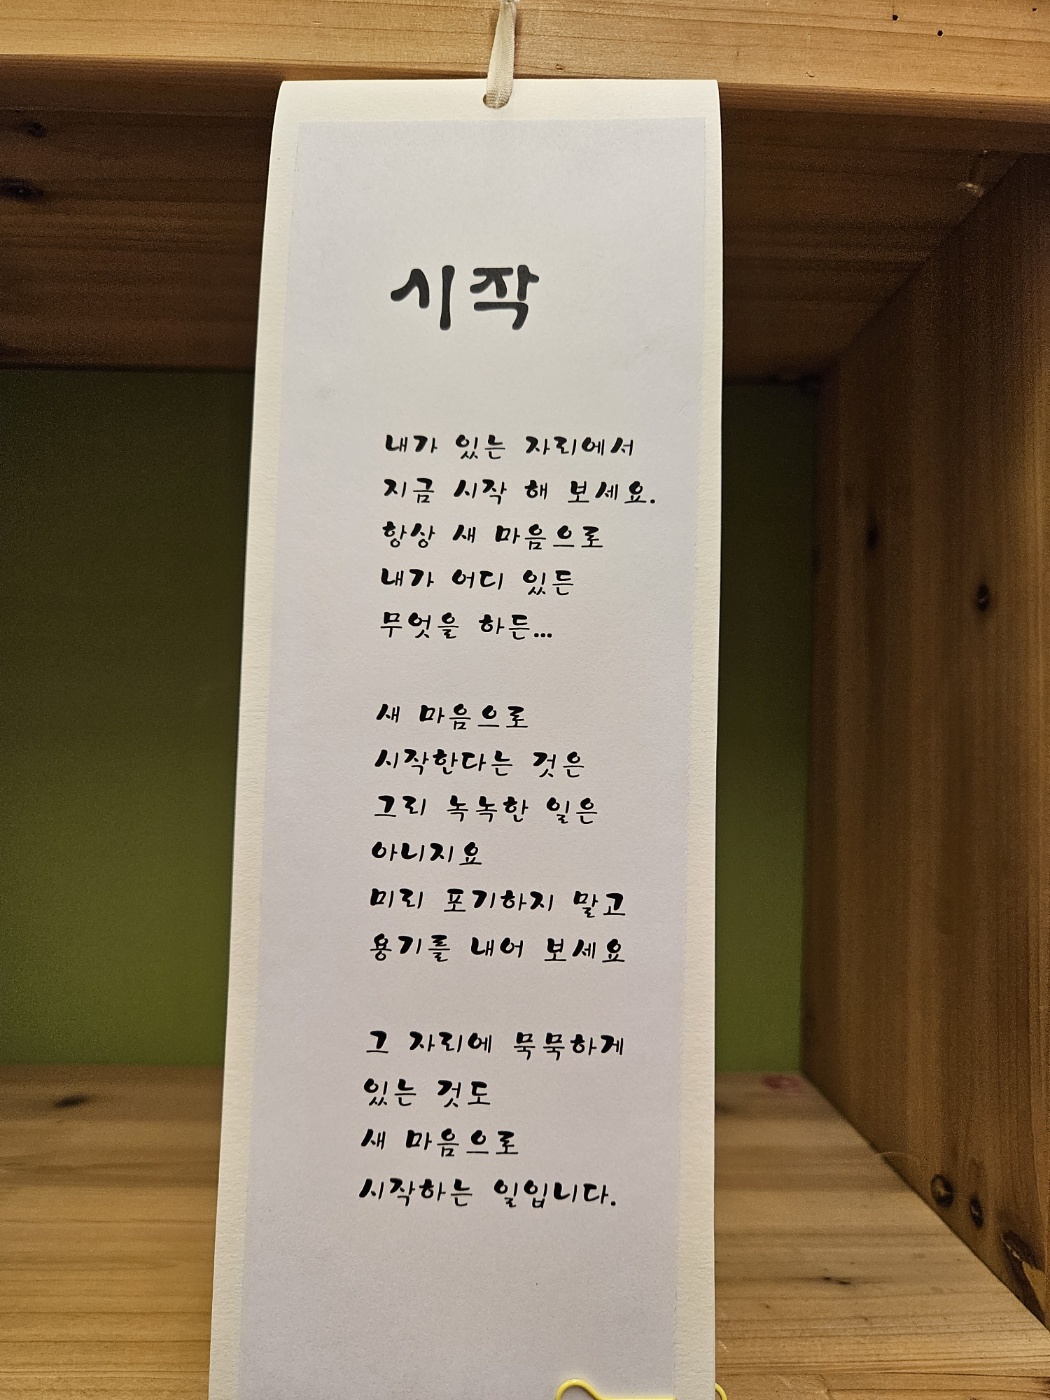 시작
내가 있는 자리에서
지금 시작 해 보세요.
항상 새 마음으로
내가 어디 있든
무엇을 하든...
새 마음으로
시작한다는 것은
그리 녹녹한 일은
아니지요
미리 포기하지 말고
용기를 내어 보세요
그 자리에 묵묵하게
있는 것도
새 마음으로
시작하는 일입니다.